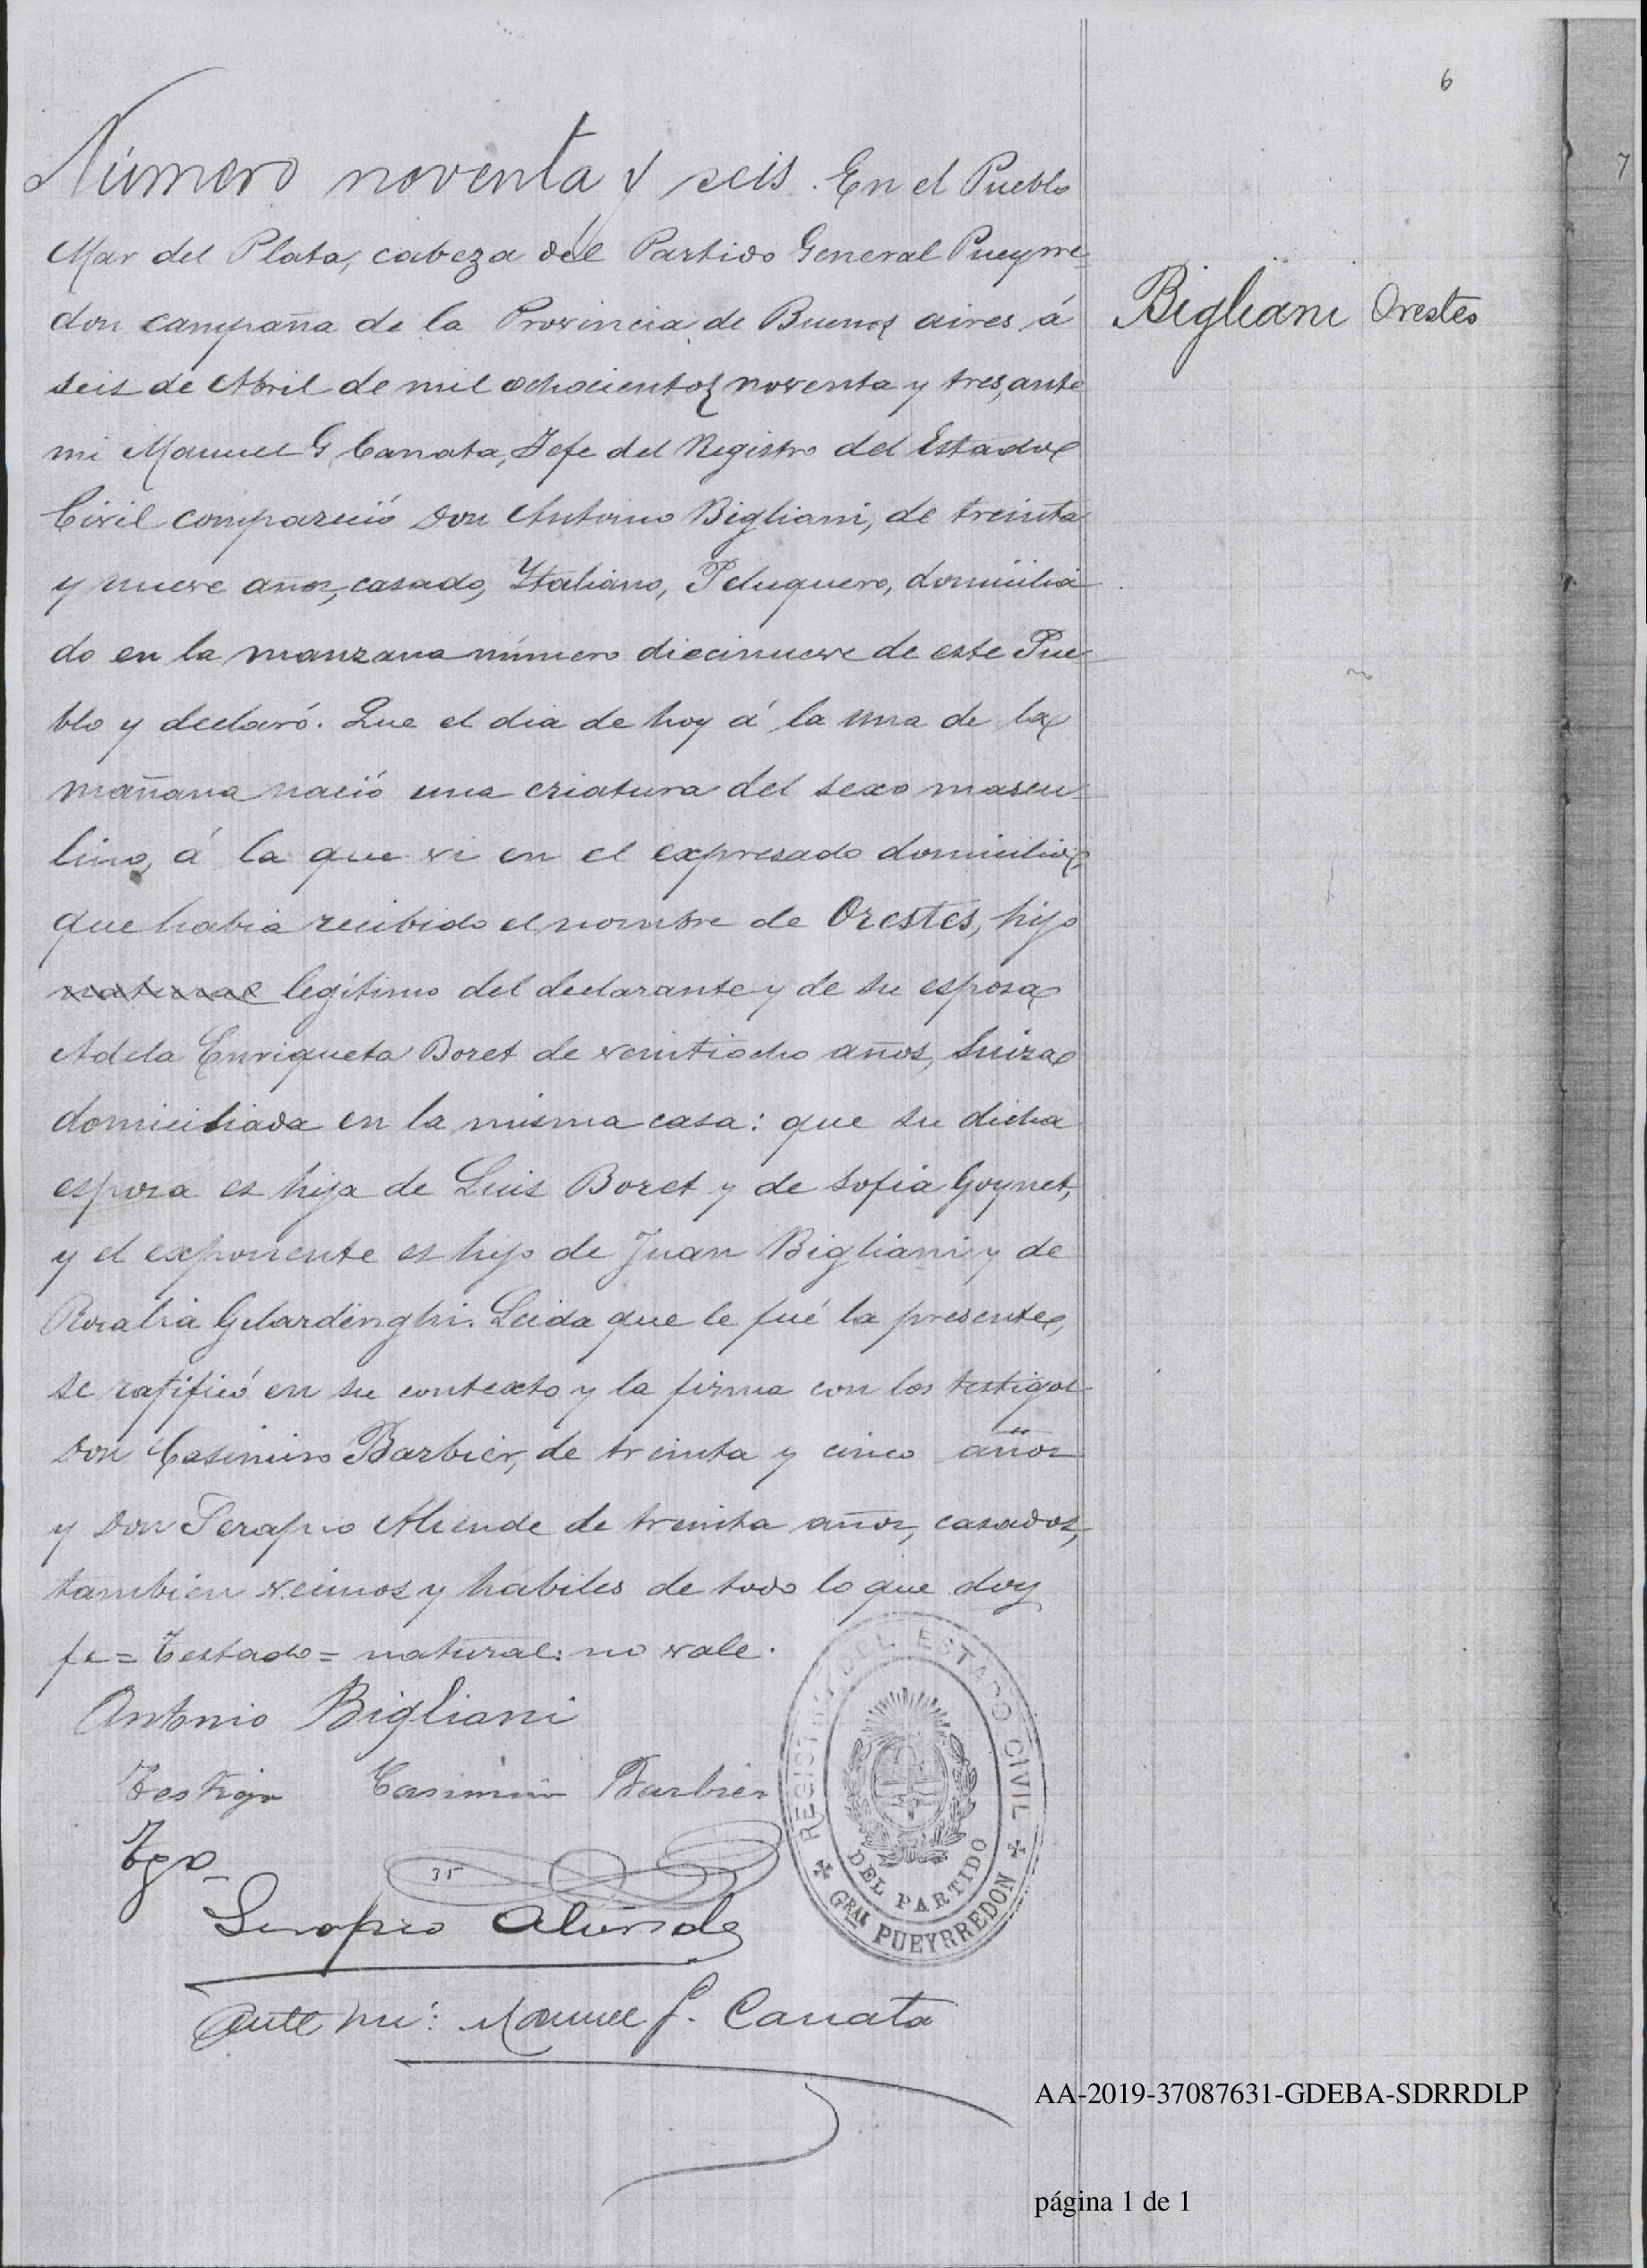 6
7
Número noventa y seis. En el Pueblo
Mar del Plata, cabeza del Partido General Pueyrre-
don campaña de la Provincia de Buenos aires á
Bigliani Orestes
seis de Abril de mil ochocientos noventa y tres, ante
mi Manuel G Canata, Jefe del Registro del Estado
Civil compareció Don Antonio Bigliani, de treinta
y nueve años, casado, Italiano, Peluquero, domicilia-
do en la manzana número diecinueve de este Pue-
blo y declaró. Que el dia de hoy á la una de la
mañana nació una criatura del sexo mascu-
lino, á la que vi en el expresado domicilio,
que habia recibido el nombre de Orestes, hijo
natural legítimo del declarante y de su esposa
Adela Enriqueta Boret de veintiocho años, Suiza
domiciliada en la misma casa: que su dicha
esposa es hija de Luis Boret y de Sofia Goynet,
y el exponente es hijo de Juan Bigliani y de
Rosalia Gelardenghi. Leida que le fué la presente,
se ratificó en su contexto y la firma con los testigos
Don Casimiro Barbier, de treinta y cinco años
y Don Serapio Aliende de treinta años, casados,
tambien vecinos y hábiles de todo lo que doy
fe = Testado = natural: no vale.
Antonio Bigliani
Testigo Casimiro Barbier
Tgo
35
Serapio Aliende
Ante mi: Manuel G. Canata
REGISTRO DEL ESTADO CIVIL
DEL PARTIDO
GRAL PUEYRREDON
AA-2019-37087631-GDEBA-SDRRDLP
página 1 de 1